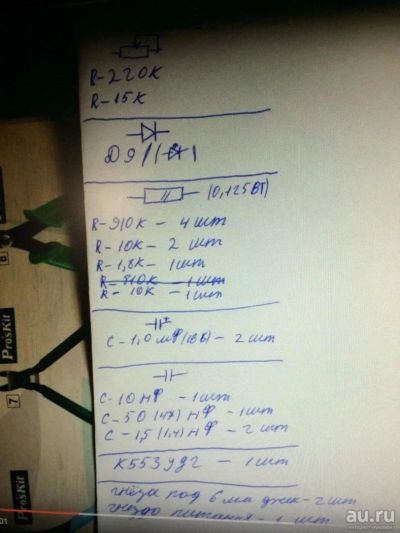 R-220K
R-15K
Д9
(0,125ВТ)
R-910K - 4 шт
R-10K - 2 шт
R-1,8K - 1 шт
R-910K - 1 шт
R-10K - 1 шт
C-1,0 мФ (16В) - 2 шт
C-10 НФ - 1 шт
C-50 (47) НФ - 1 шт
C-1,5 (1,4) НФ - 2 шт
К553УД2 - 1 шт
гнёзда под 6 мм джек - 2 шт
гнездо питания - 1 шт
ProsKit
8
ProsKit
7
ProsKit
01
au.ru